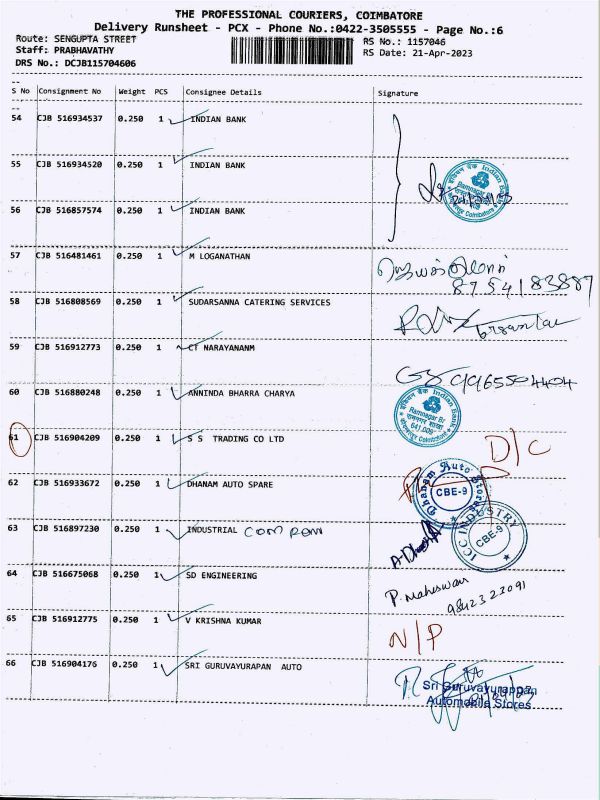 THE PROFESSIONAL COURIERS, COIMBATORE
Delivery Runsheet - PCX - Phone No.:0422-3505555 - Page No.:6
Route: SENGUPTA STREET
RS No.: 1157046
Staff: PRABHAVATHY
RS Date: 21-Apr-2023
DRS No.: DCJB115704606
S No Consignment No Weight PCS Consignee Details Signature
54 CJB 516934537 0.250 1 INDIAN BANK
55 CJB 516934520 0.250 1 INDIAN BANK
56 CJB 516857574 0.250 1 INDIAN BANK
57 CJB 516481461 0.250 1 M LOGANATHAN
8754183887
58 CJB 516808569 0.250 1 SUDARSANNA CATERING SERVICES
59 CJB 516912773 0.250 1 CT NARAYANANM
9965504404
60 CJB 516880248 0.250 1 ANNINDA BHARRA CHARYA
Indian Bank
Ramnagar Br
641 009
Coimbatore
61 CJB 516904209 0.250 1 S S TRADING CO LTD D/C
62 CJB 516933672 0.250 1 DHANAM AUTO SPARE
Dhanam Auto Stores
CBE-9
63 CJB 516897230 0.250 1 INDUSTRIAL
ICC INDUSTRY
CBE-9
64 CJB 516675068 0.250 1 SD ENGINEERING P. Maheswari
9842323091
65 CJB 516912775 0.250 1 V KRISHNA KUMAR N/P
66 CJB 516904176 0.250 1 SRI GURUVAYURAPAN AUTO
Sri Guruvayurappan
Automobile Stores